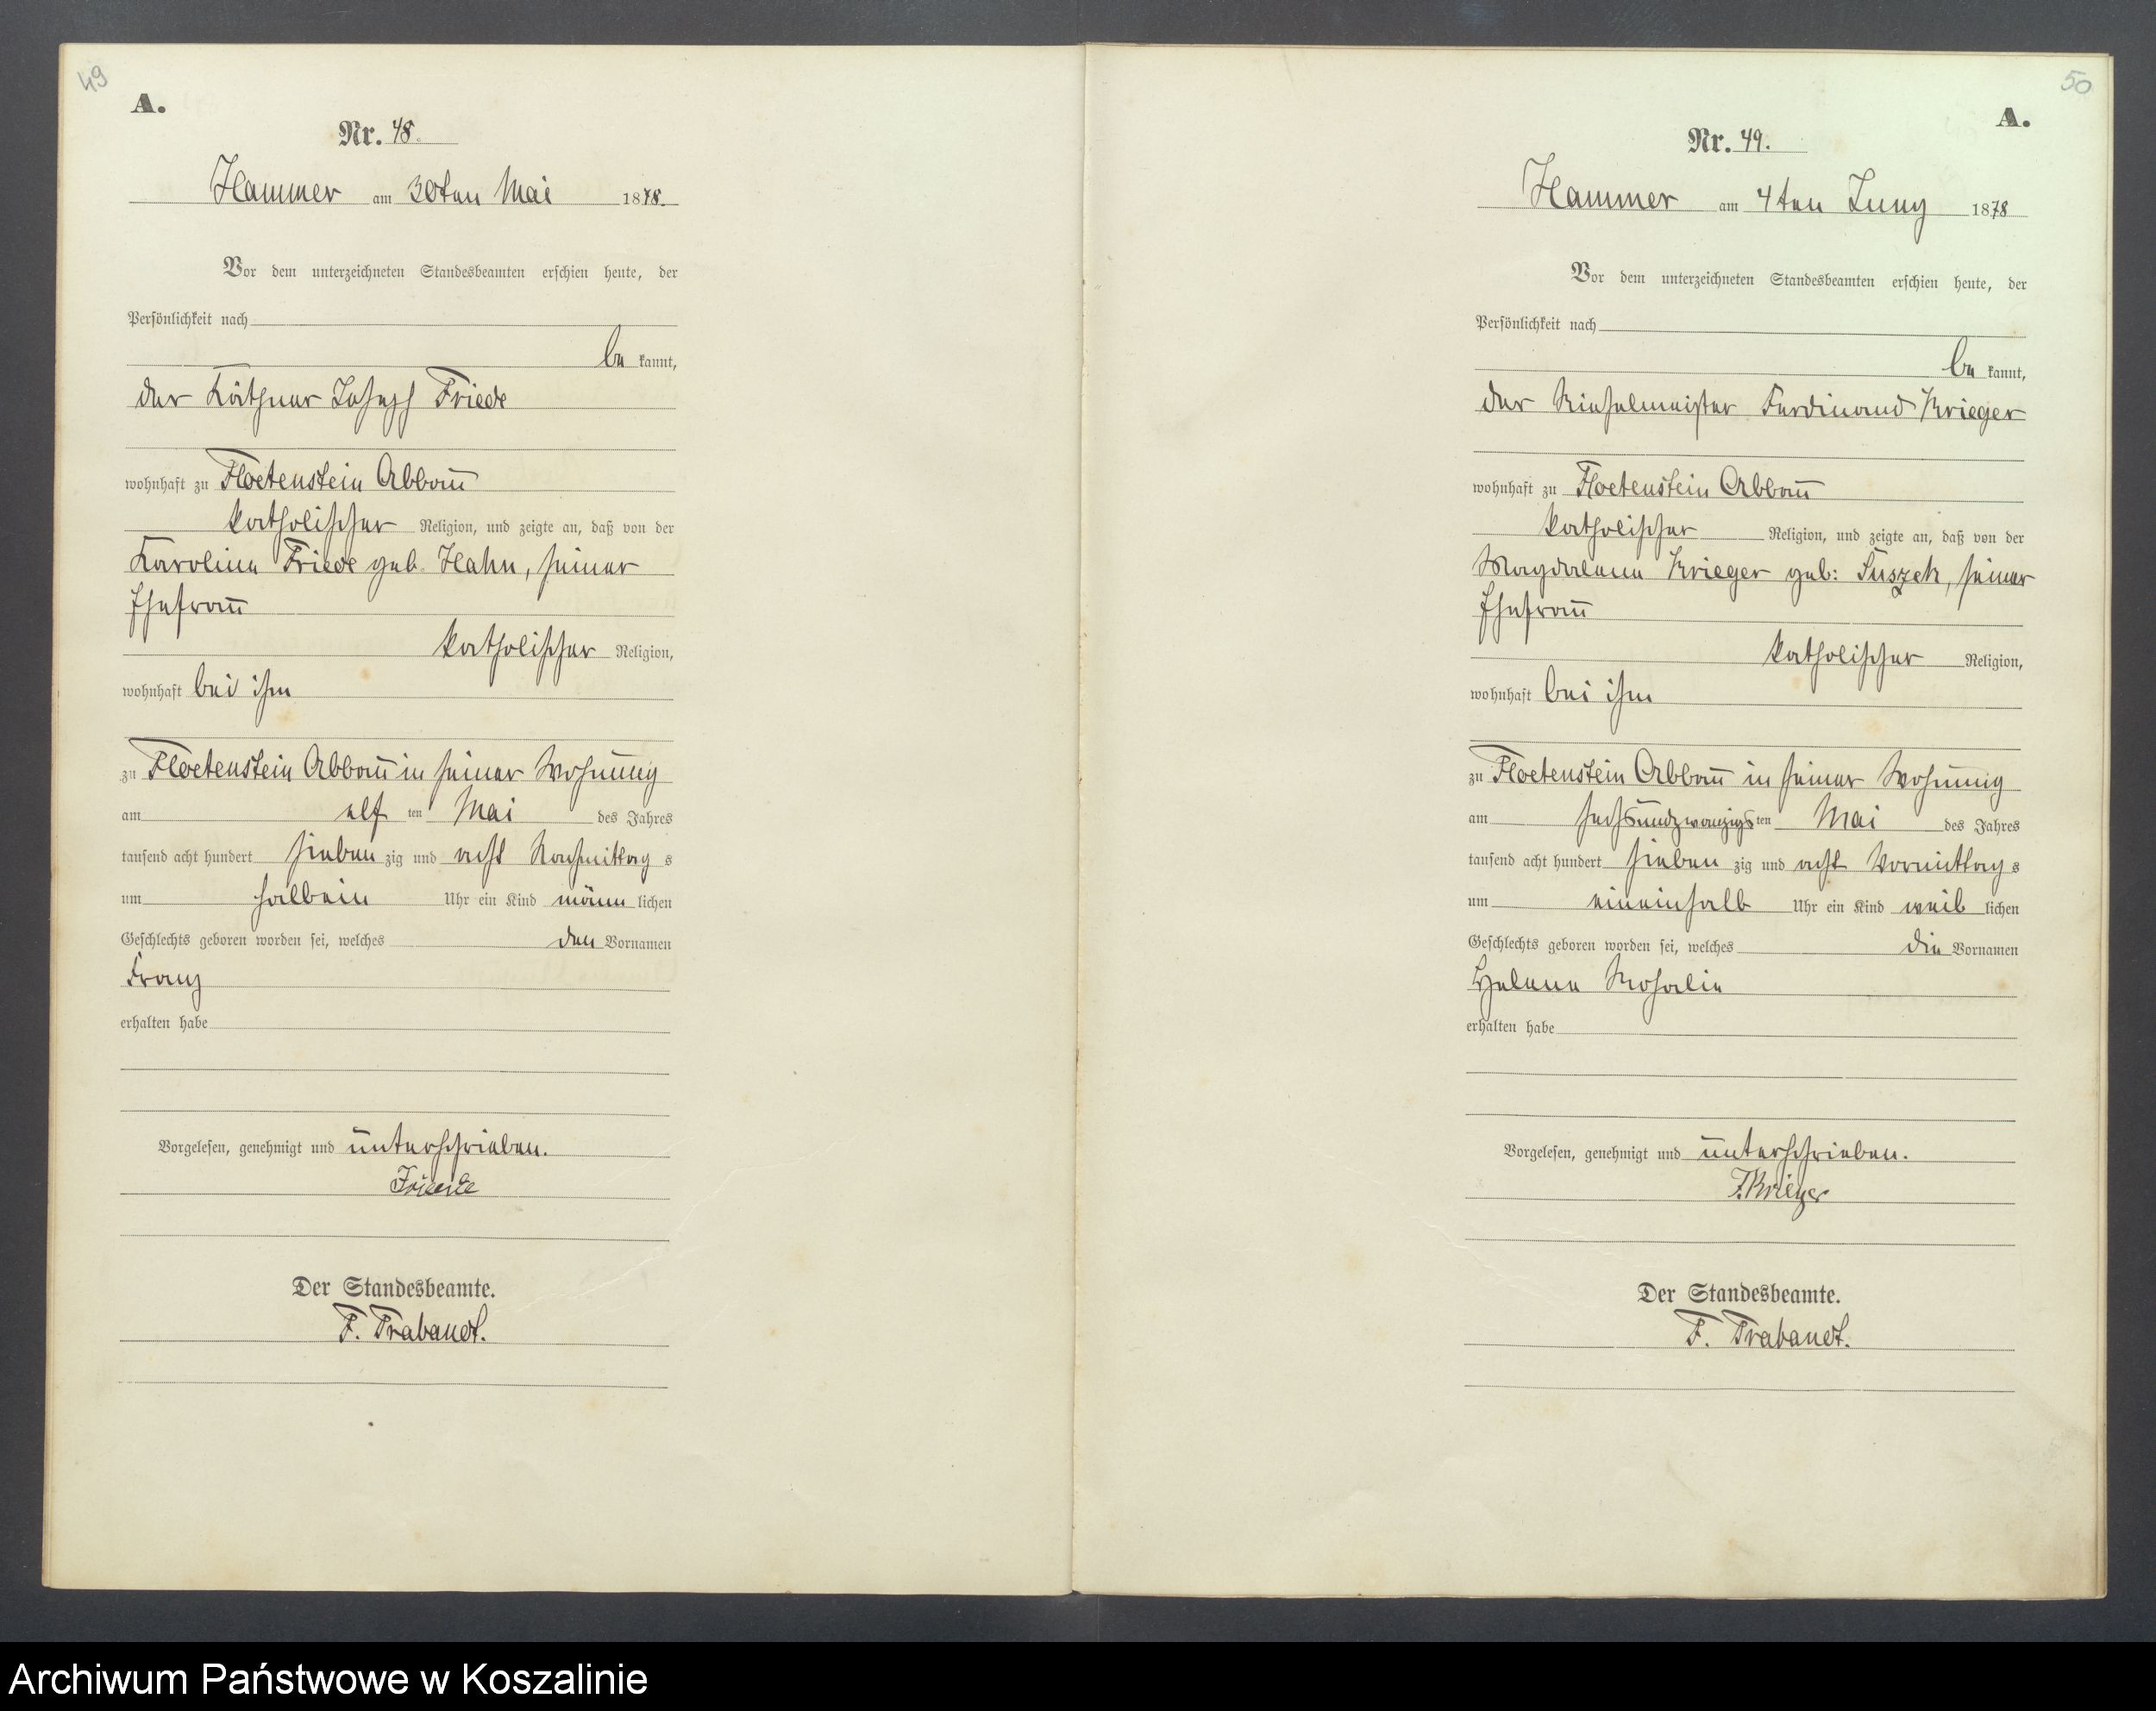 49
A.
Nr. 48.
Hammer am 30ten Mai 1878.
Vor dem unterzeichneten Standesbeamten erschien heute, der
Persönlichkeit nach
be kannt,
der Käthner Joseph Friede
wohnhaft zu Floetenstein Abbau
katholischer Religion, und zeigte an, daß von der
Karoline Friede geb. Hahn, seiner
Ehefrau
katholischer Religion,
wohnhaft bei ihm
zu Floetenstein Abbau in seiner Wohnung
am elf ten Mai des Jahres
tausend acht hundert sieben zig und acht Nachmittag s
um halbein Uhr ein Kind männ lichen
Geschlechts geboren worden sei, welches den Vornamen
Franz
erhalten habe
Vorgelesen, genehmigt und unterschrieben.
Friede
Der Standesbeamte.
F. Trabandt.
50
A.
Nr. 49.
Hammer am 4ten Juny 1878
Vor dem unterzeichneten Standesbeamten erschien heute, der
Persönlichkeit nach
be kannt,
der Rieselmeister Ferdinand Krieger
wohnhaft zu Floetenstein Abbau
katholischer Religion, und zeigte an, daß von der
Magdalena Krieger geb: Suszek, seiner
Ehefrau
katholischer Religion,
wohnhaft bei ihm
zu Floetenstein Abbau in seiner Wohnung
am sechsundzwanzigs ten Mai des Jahres
tausend acht hundert sieben zig und acht Vormittag s
um eineinhalb Uhr ein Kind weib lichen
Geschlechts geboren worden sei, welches die Vornamen
Helene Rosalie
erhalten habe
Vorgelesen, genehmigt und unterschrieben.
F. Krieger
Der Standesbeamte.
F. Trabandt.
Archiwum Państwowe w Koszalinie